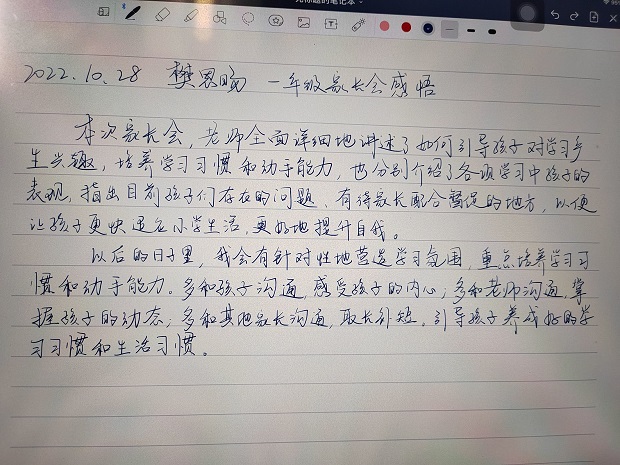 无标题的笔记本
2022.10.28 樊思旸 一年级家长会感悟
本次家长会，老师全面详细地讲述了如何引导孩子对学习产
生兴趣，培养学习习惯和动手能力，也分别介绍了各项学习中孩子的
表现，指出目前孩子们存在的问题，有待家长配合督促的地方，以便
让孩子更快适应小学生活，更好地提升自我。
以后的日子里，我会有针对性地营造学习氛围，重点培养学习习
惯和动手能力。多和孩子沟通，感受孩子的内心；多和老师沟通，掌
握孩子的动态；多和其他家长沟通，取长补短。引导孩子养成好的学
习习惯和生活习惯。